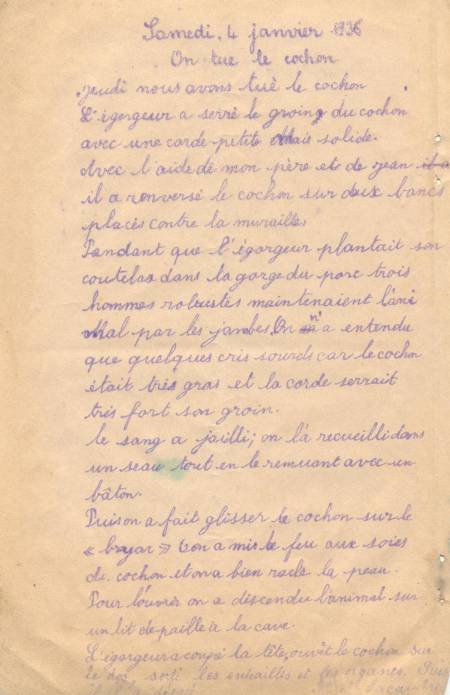 Samedi, 4 janvier 1936
On tue le cochon
Jeudi nous avons tué le cochon
L'égorgeur a serré le groing du cochon
avec une corde petite Mais solide.
Avec l'aide de mon père et de Jean il a
il a renversé le cochon sur deux bancs
placés contre la muraille.
Pendant que l'égorgeur plantait son
coutelas dans la gorge du porc trois
hommes robustes maintenaient l'ani
Mal par les jambes. On n'a entendu
que quelques cris sourds car le cochon
était très gras et la corde serrait
très fort son groin.
le sang a jailli; on l'a recueilli dans
un seau tout en le remuant avec un
bâton.
Puis on a fait glisser le cochon sur le
« bayar » on a mis le feu aux soies
de cochon et on a bien raclé la peau.
Pour l'ouvrir on a descendu l'animal sur
un lit de paille à la cave.
L'égorgeur a coupé la tête, ouvrit le cochon sur
le dos, sorti les entrailles et ses organes. Puis